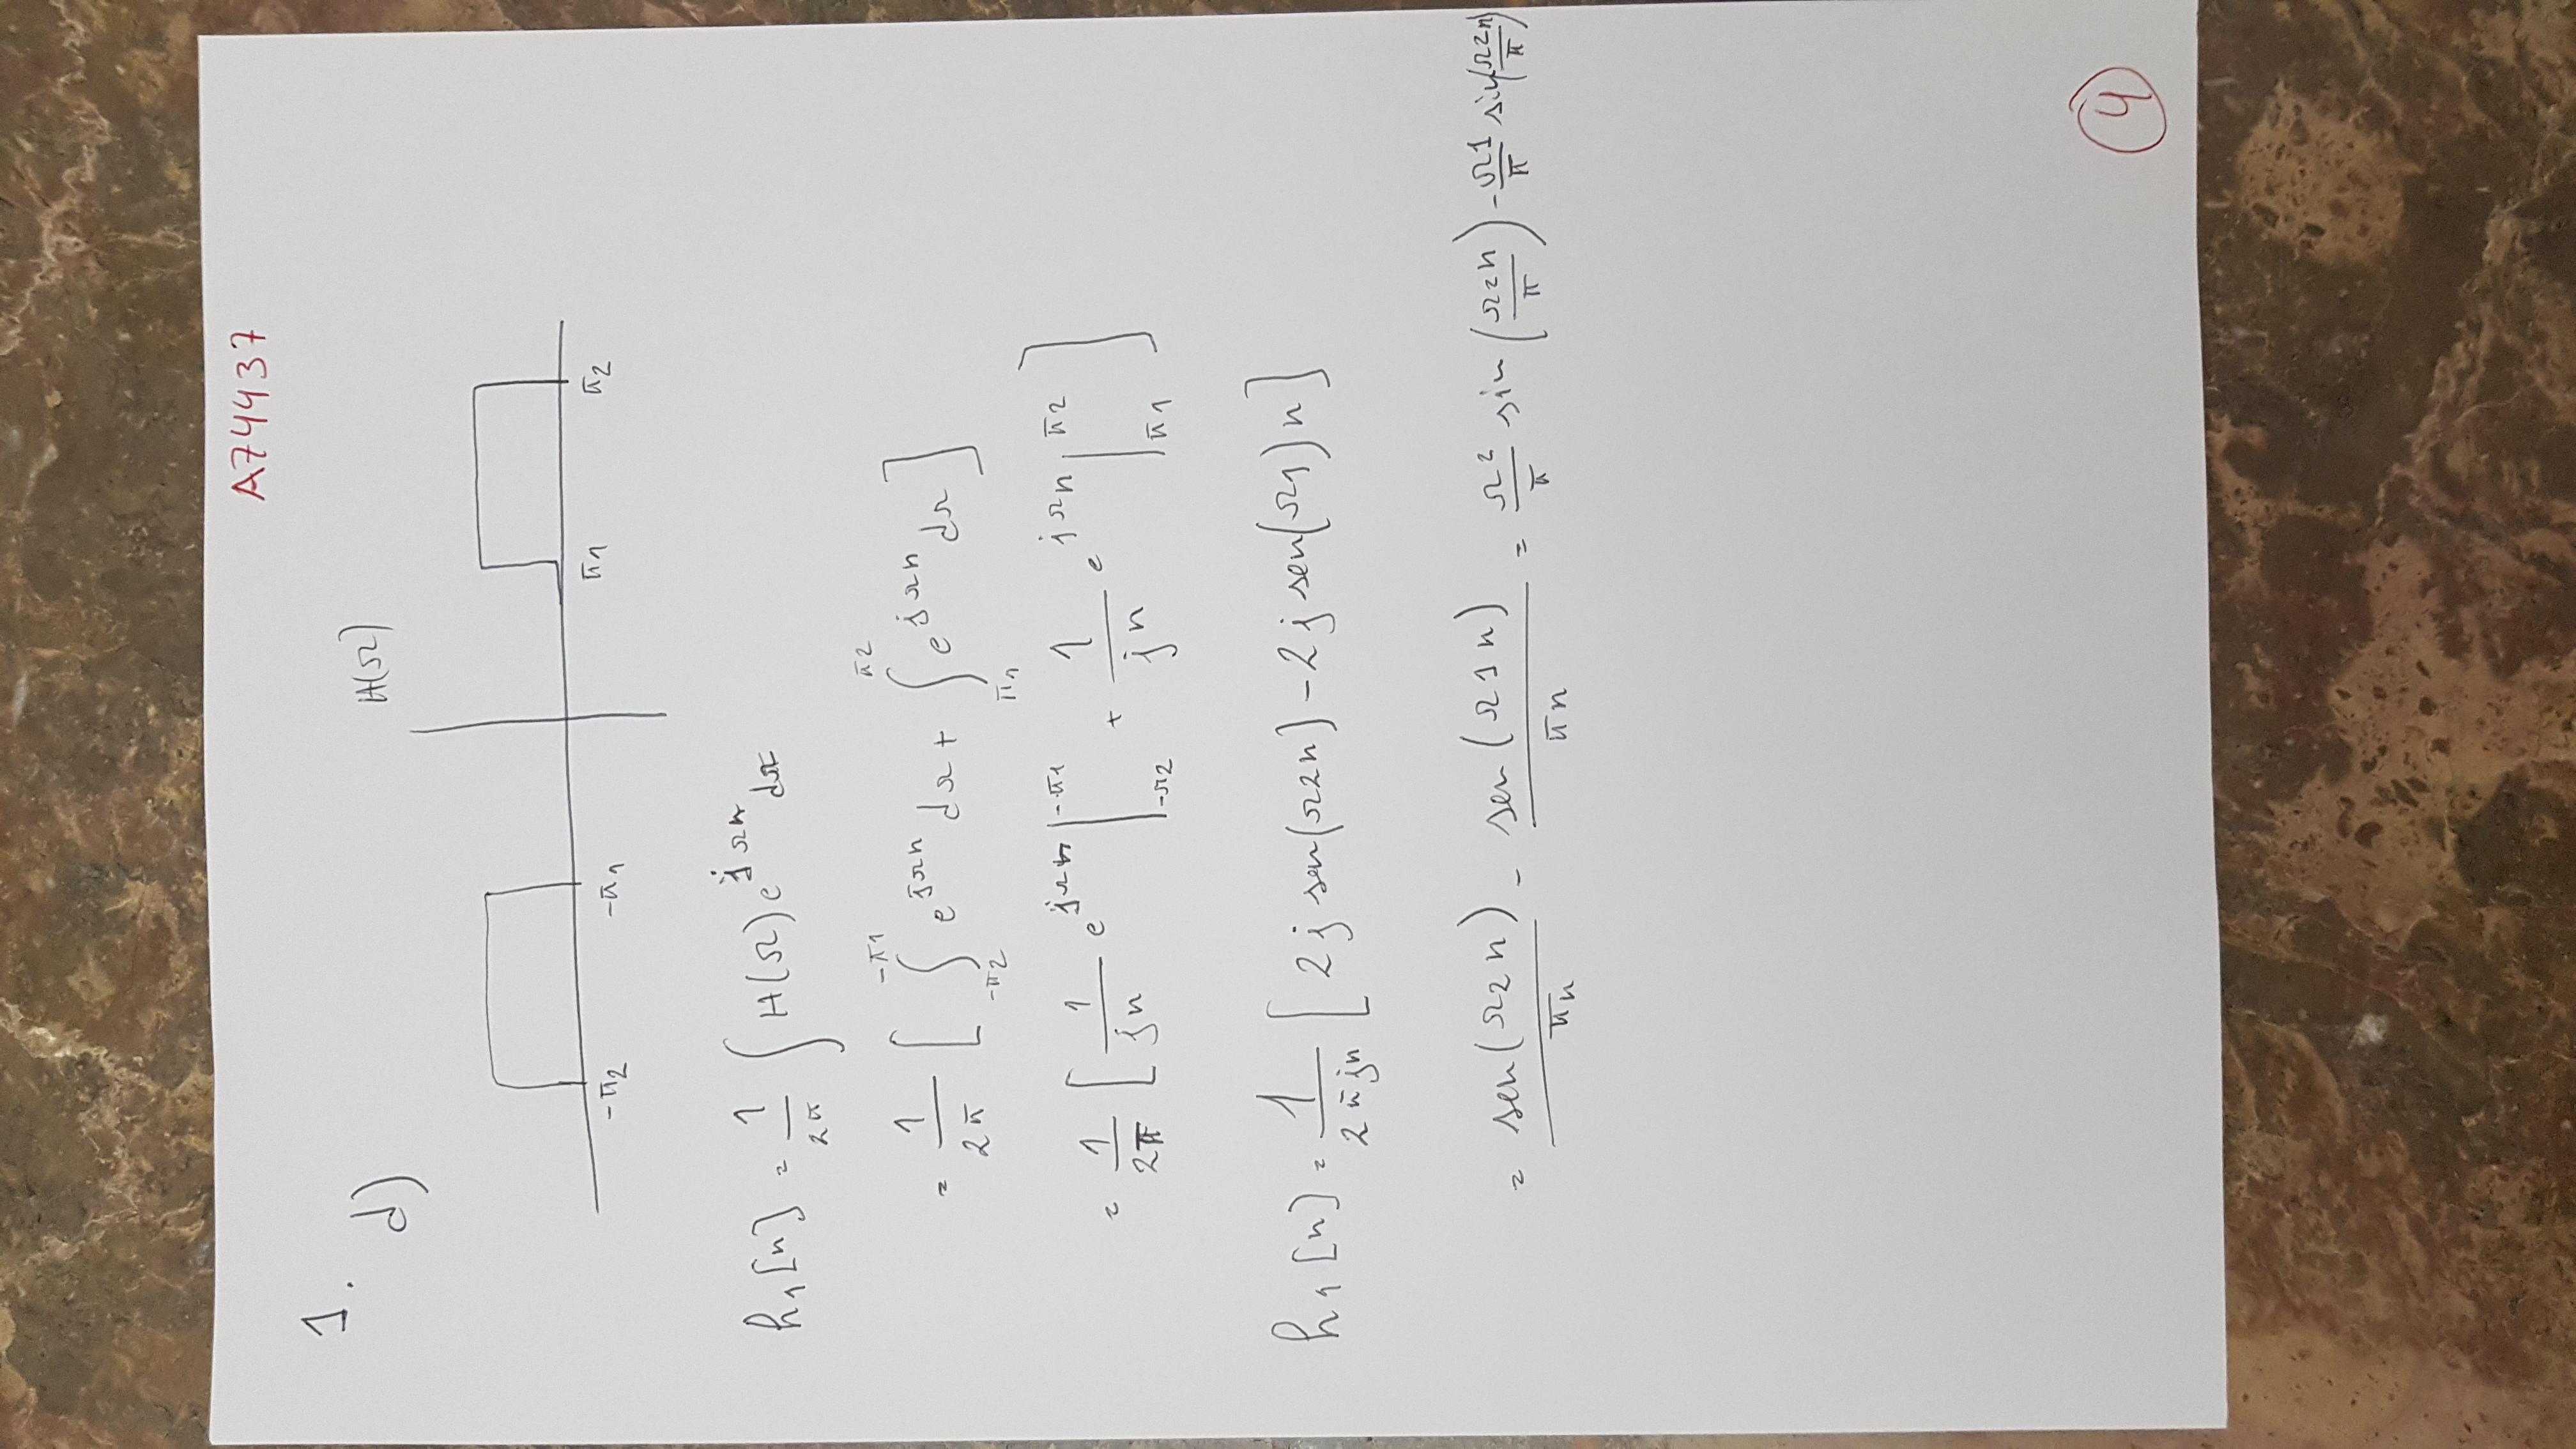 A74437
1.
d)
H(Ω)
-π2 -π1 π1 π2
h1[n] = 1/2π ∫ H(Ω) e^jΩn dΩ
= 1/2π [ ∫_-π2^-π1 e^jΩn dΩ + ∫_π1^π2 e^jΩn dΩ ]
= 1/2π [ 1/jn e^jΩn |_-Ω2^-π1 + 1/jn e^jΩn |_π1^π2 ]
h1[n] = 1/2πjn [ 2j sen(Ω2n) - 2j sen(Ω1)n ]
= sen(Ω2n)/πn - sen(Ω1n)/πn = Ω2/π sin(Ω2n/π) - Ω1/π sin(Ω2n/π)
4